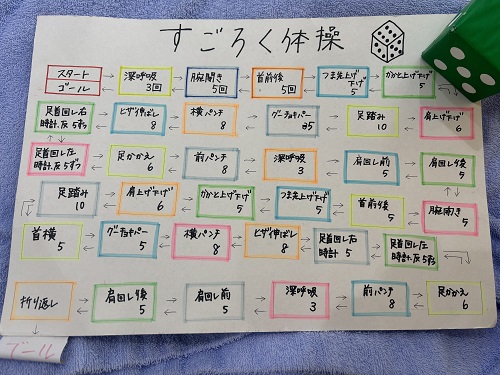 すごろく体操
スタート
ゴール
深呼吸
3回
腕開き
5回
首前後
5回
つま先上げ下げ
5
かかと上げ下げ
5
足首回し右
時計.左 5ずつ
ヒザ伸ばし
8
横パンチ
8
グーチョキパー
5
足踏み
10
肩上げ下げ
6
足首回し左
時計.左 5ずつ
足かかえ
6
前パンチ
8
深呼吸
3
肩回し前
5
肩回し後
5
足踏み
10
肩上げ下げ
6
かかと上げ下げ
5
つま先上げ下げ
5
首前後
5
腕開き
5
首横
5
グーチョキパー
5
横パンチ
8
ヒザ伸ばし
8
足首回し右
時計 5
足首回し左
時計.左 5ずつ
折り返し
肩回し後
5
肩回し前
5
深呼吸
3
前パンチ
8
足かかえ
6
ゴール